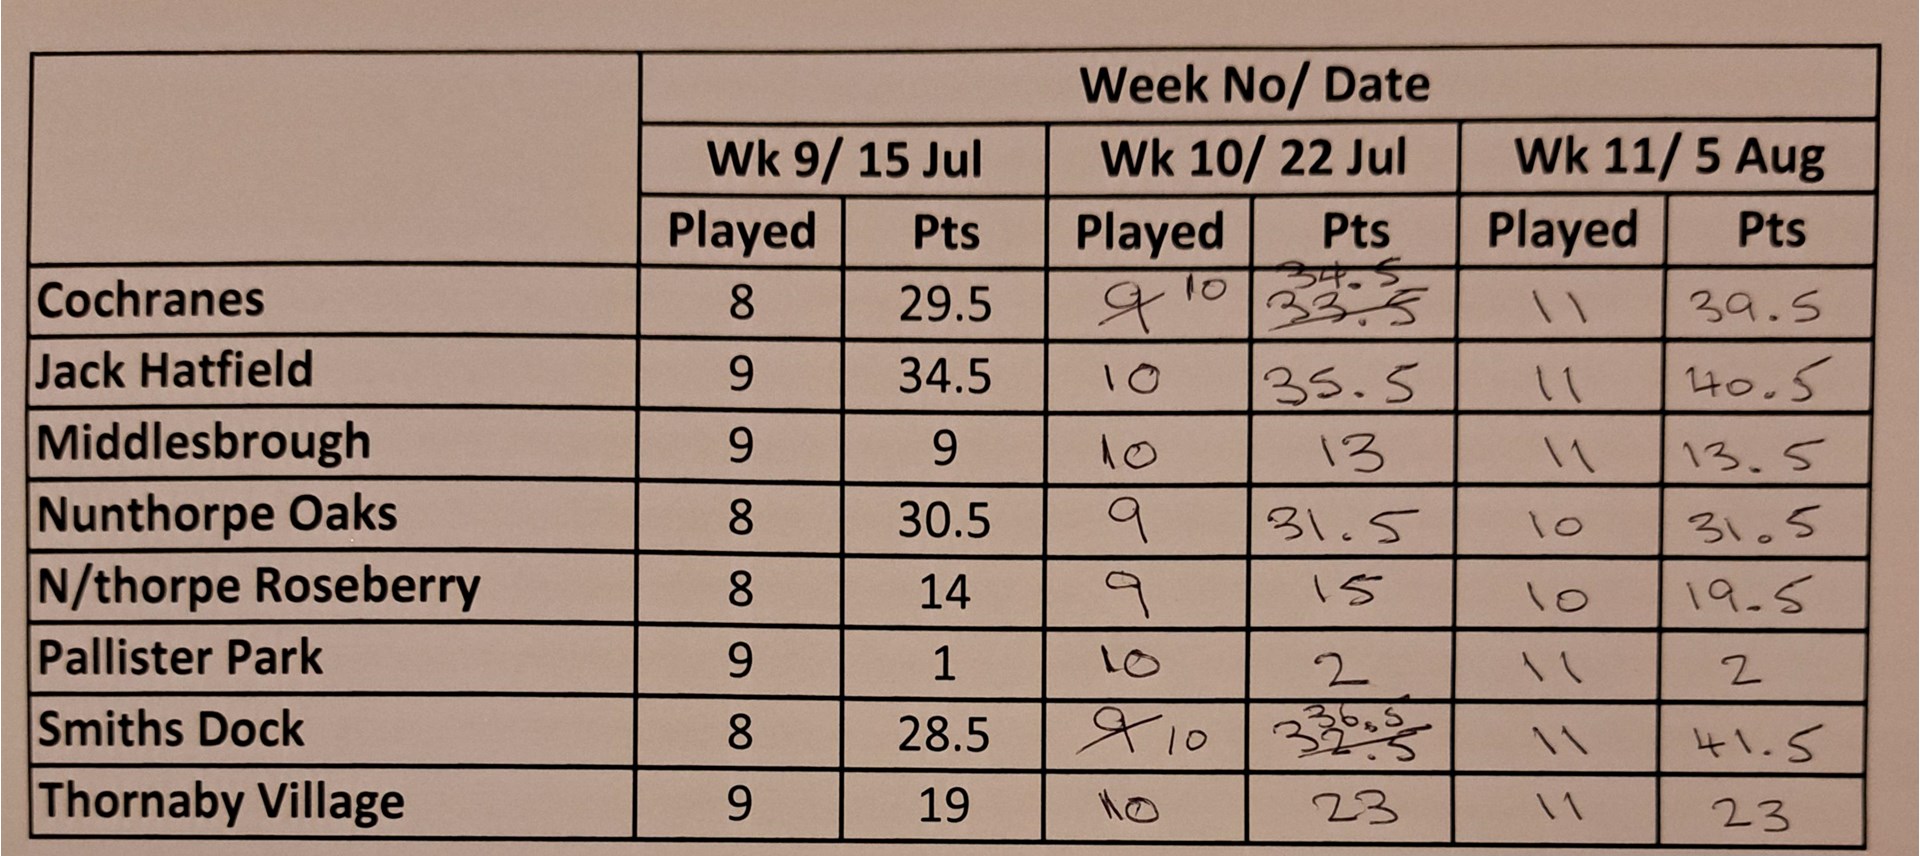 Week No/ Date
Wk 9/ 15 Jul Wk 10/ 22 Jul Wk 11/ 5 Aug
Played Pts Played Pts Played Pts
Cochranes 8 29.5 9 10 34.5 33.5 11 39.5
Jack Hatfield 9 34.5 10 35.5 11 40.5
Middlesbrough 9 9 10 13 11 13.5
Nunthorpe Oaks 8 30.5 9 31.5 10 31.5
N/thorpe Roseberry 8 14 9 15 10 19.5
Pallister Park 9 1 10 2 11 2
Smiths Dock 8 28.5 9 10 36.5 32.5 11 41.5
Thornaby Village 9 19 10 23 11 23